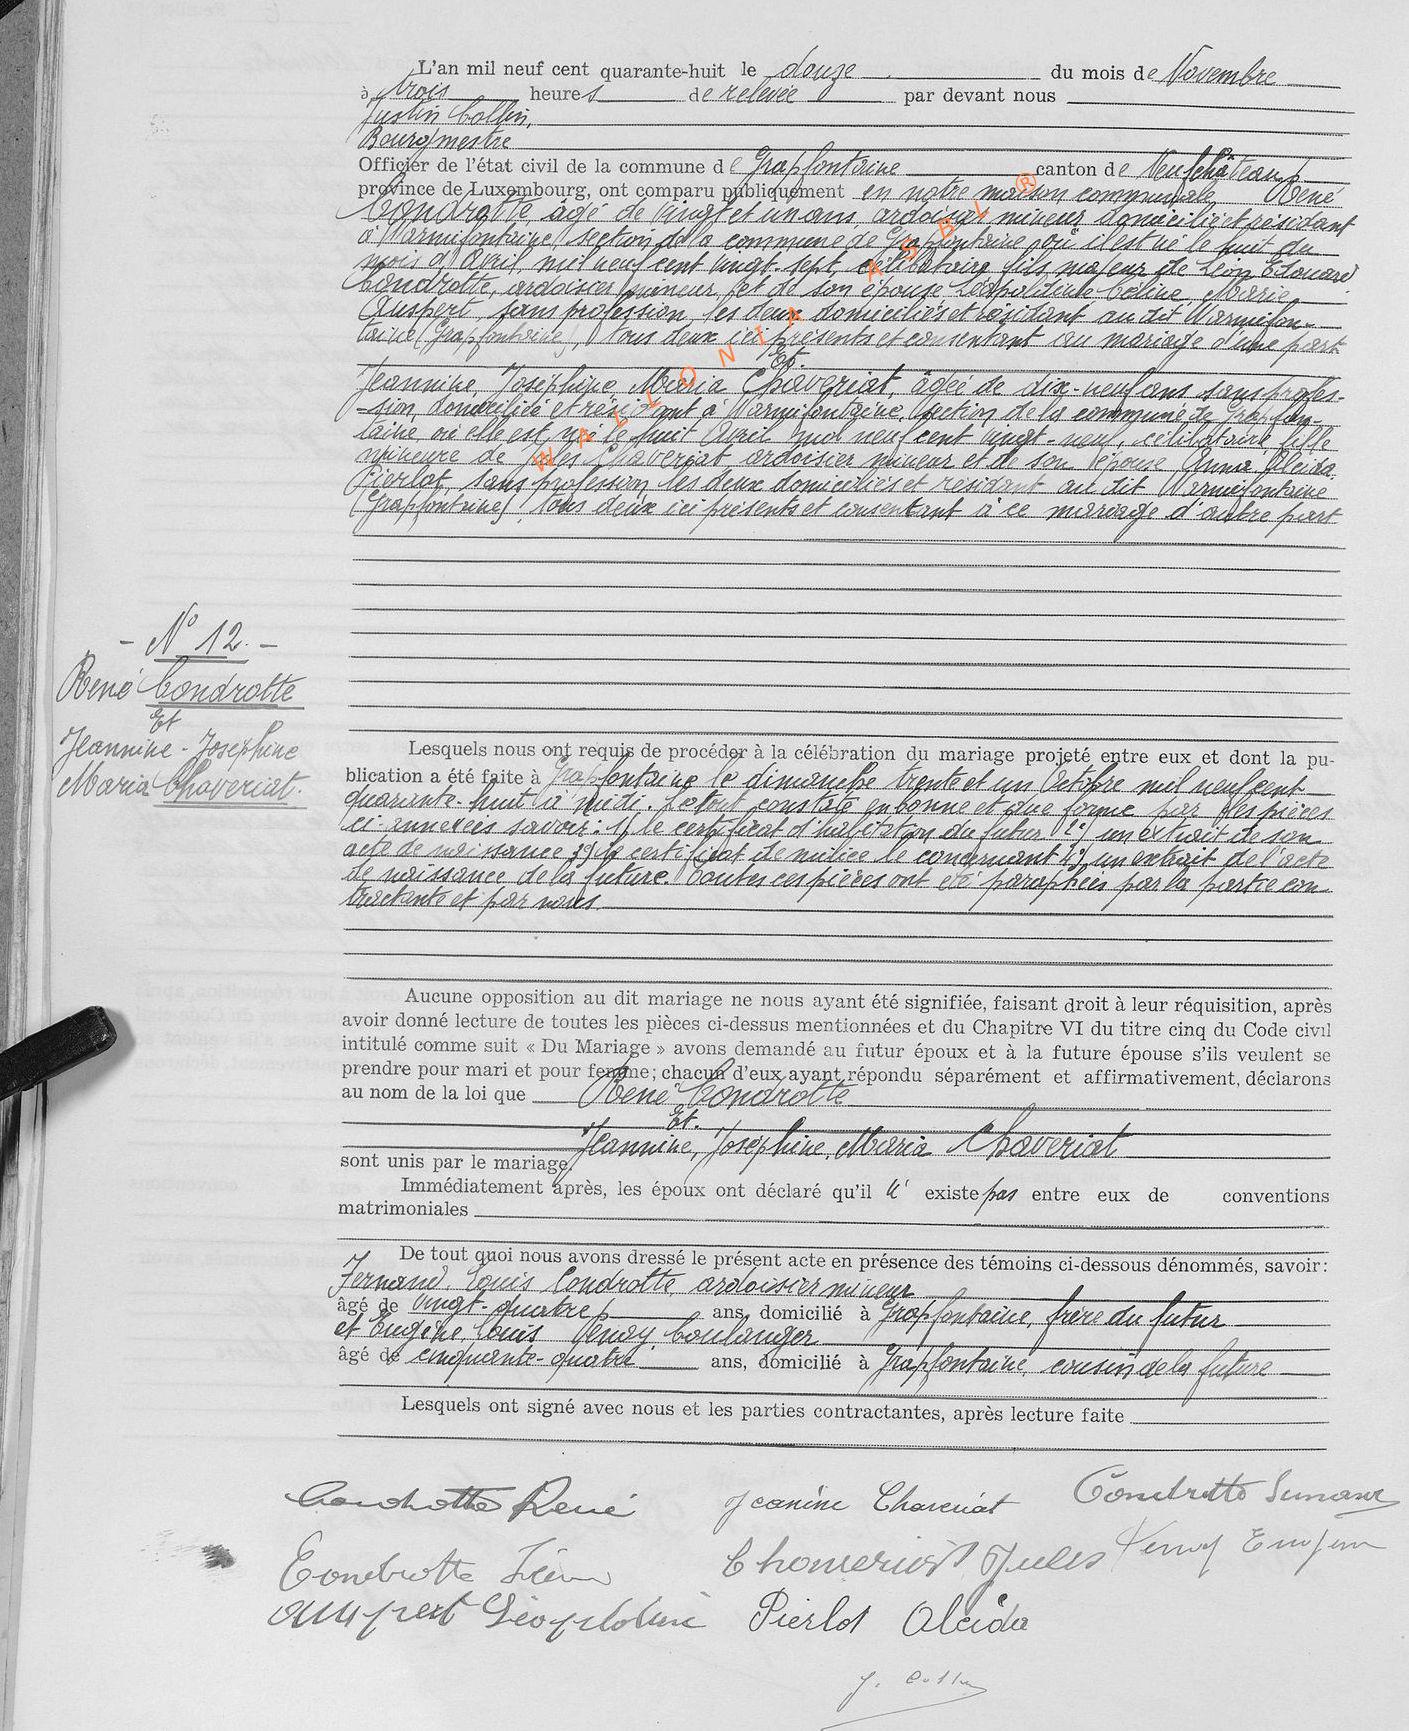 L'an mil neuf cent quarante-huit le douze du mois de Novembre
à trois heures de relevée par devant nous
Justin Collin,
Bourgmestre
Officier de l'état civil de la commune de Grapfontaine canton de Neufchâteau
province de Luxembourg, ont comparu publiquement en notre maison communale, René
Condrotte, âgé de vingt et un ans, ardoisier mineur domicilié et résidant
à Warmifontaine, section de la commune de Grapfontaine où il est né le huit du
mois d'Avril, mil neuf cent vingt-sept, célibataire fils majeur de Léon Edouard
Condrotte, ardoisier mineur, et de son épouse Léopoldine Céline, Marie
Auspert, sans profession, les deux domiciliés et résidant au dit Warmifon-
taine (Grapfontaine), tous deux ici présents et consentant au mariage d'une part
Et.
Jeannine, Joséphine, Maria Chaveriat, âgée de dix-neuf ans sans profes-
-sion, domiciliée et résidant à Warmifontaine, section de la commune de Grapfon-
taine, où elle est née le huit Avril mil neuf cent vingt-neuf, célibataire, fille
mineure de Jules Chaveriat, ardoisier mineur et de son épouse Anna Alcida
Pierlot, sans profession, les deux domiciliés et résidant au dit Warmifontaine
(Grapfontaine), tous deux ici présents et consentant à ce mariage d'autre part
WALLONIA ASBL ®
- N° 12. -
René Condrotte
Et
Jeannine - Joséphine
Maria Chaveriat.
Lesquels nous ont requis de procéder à la célébration du mariage projeté entre eux et dont la pu-
blication a été faite à Grapfontaine le dimanche trente et un Octobre mil neuf cent
quarante-huit à midi. Le tout constaté en bonne et due forme par les pièces
ci-annexées savoir: 1) le certificat d'habitation du futur 2°) un extrait de son
acte de naissance 3) le certificat de milice le concernant 4°) un extrait de l'acte
de naissance de la future. Toutes ces pièces ont été paraphées par la partie con-
tractante et par nous.
Aucune opposition au dit mariage ne nous ayant été signifiée, faisant droit à leur réquisition, après
avoir donné lecture de toutes les pièces ci-dessus mentionnées et du Chapitre VI du titre cinq du Code civil
intitulé comme suit « Du Mariage » avons demandé au futur époux et à la future épouse s'ils veulent se
prendre pour mari et pour femme; chacun d'eux ayant répondu séparément et affirmativement, déclarons
au nom de la loi que René Condrotte
Et.
Jeannine, Joséphine, Maria Chaveriat
sont unis par le mariage
Immédiatement après, les époux ont déclaré qu'il n' existe pas entre eux de conventions
matrimoniales
De tout quoi nous avons dressé le présent acte en présence des témoins ci-dessous dénommés, savoir:
Fernand, Louis Condrotte ardoisier mineur
âgé de vingt-quatre ans, domicilié à Grapfontaine, frère du futur
et Eugène, Louis boulanger
âgé de cinquante-quatre ans, domicilié à Grapfontaine, cousin de la future
Lesquels ont signé avec nous et les parties contractantes, après lecture faite
Condrotte René Jeanine Chaveriat Condrotte
Condrotte Léon Chaveriat Jules
Auspert Léopoldine Pierlot Alcida
J. Collin